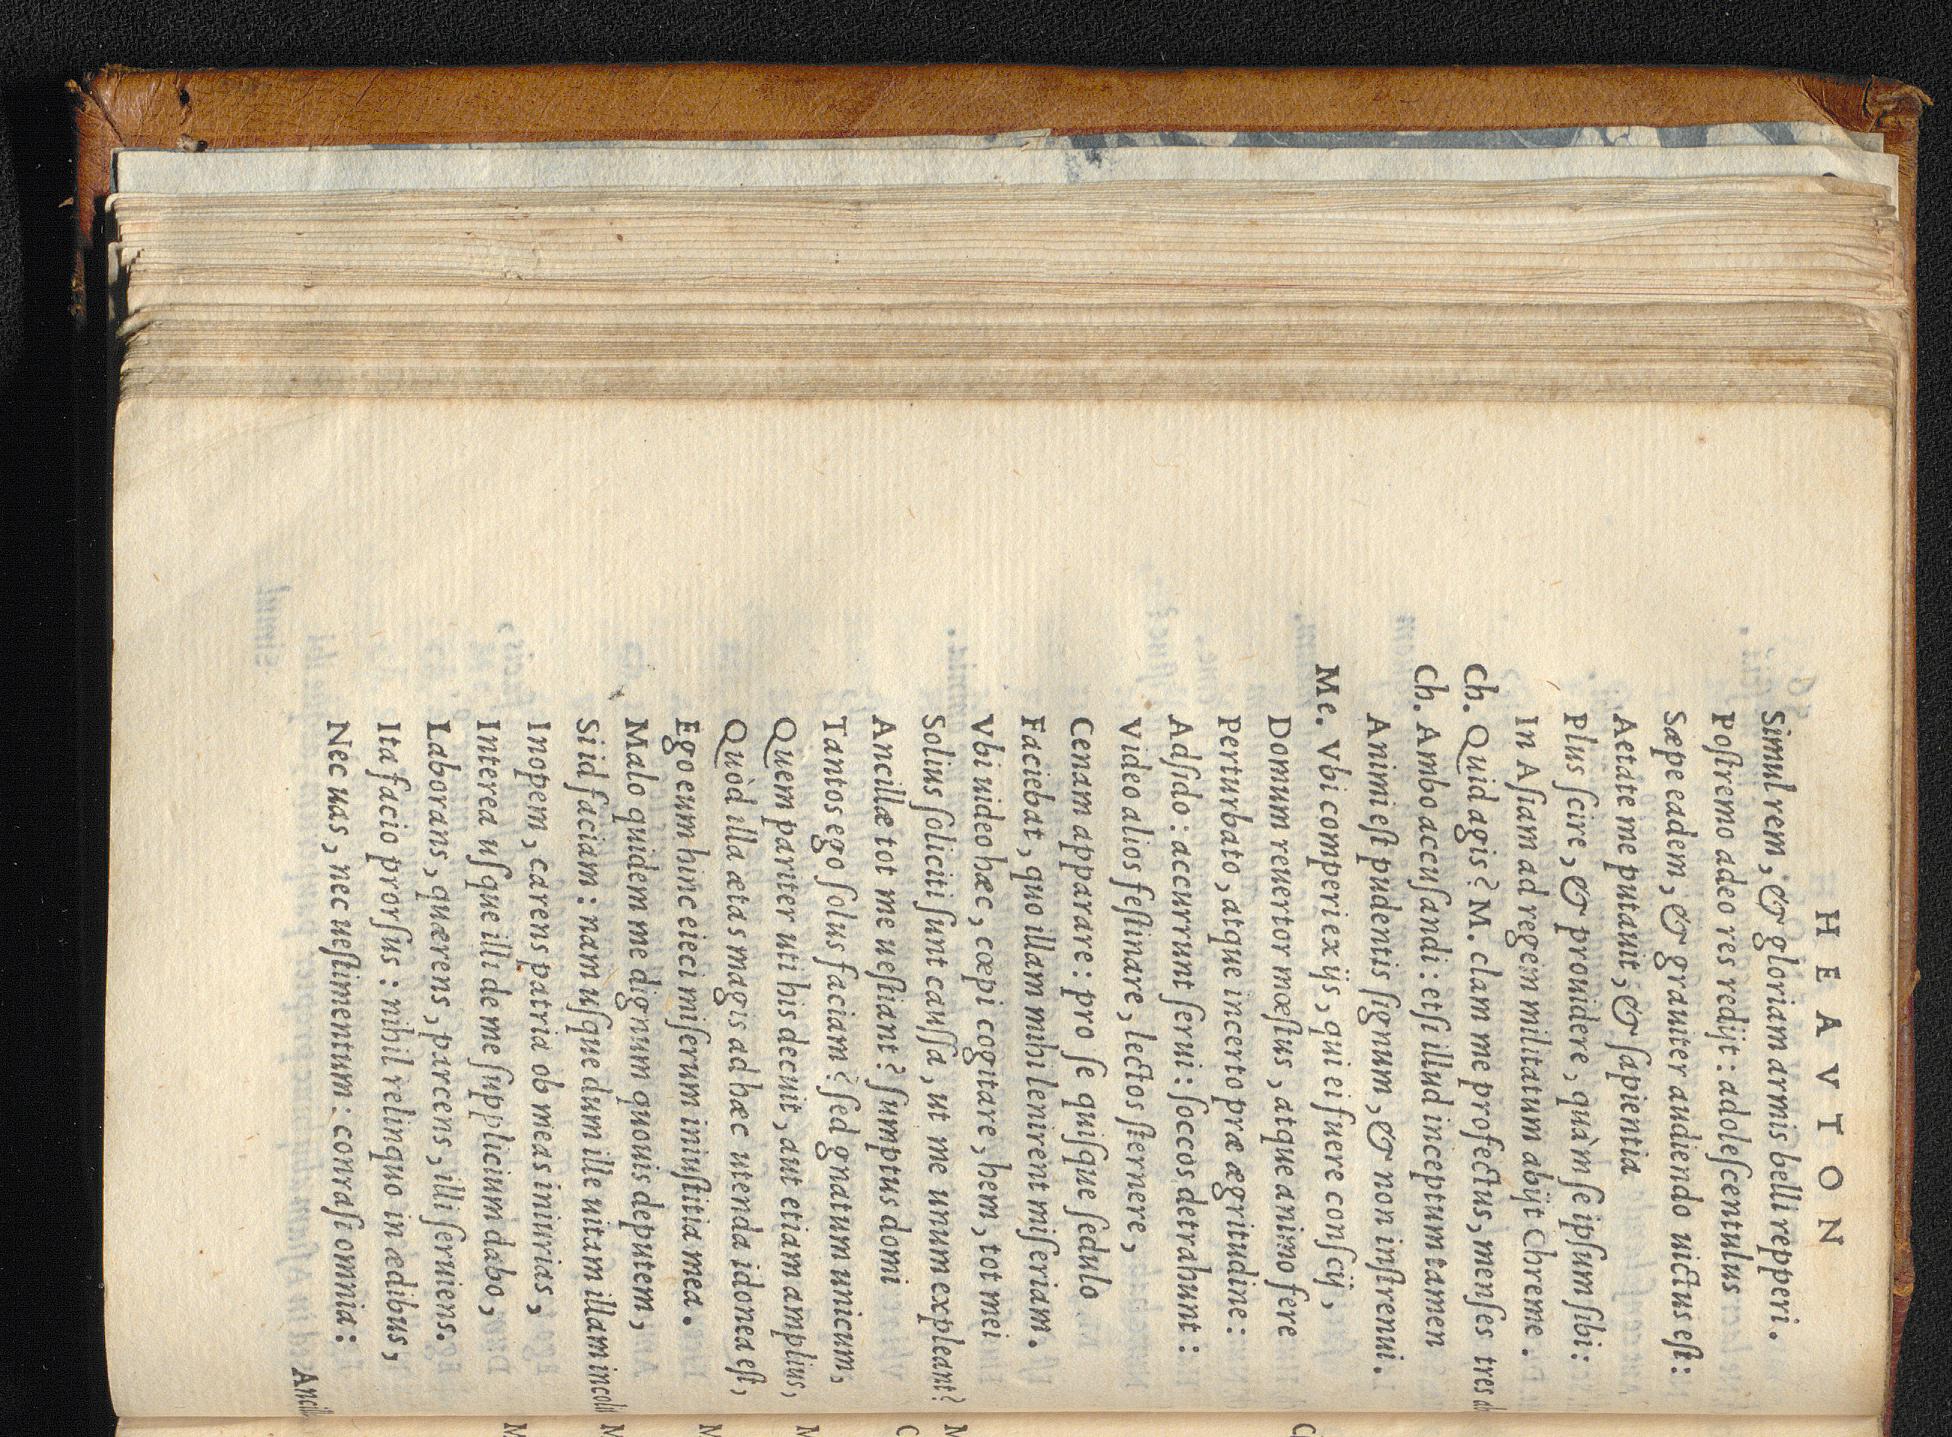 HEAVTON
Simul rem, & gloriam armis belli repperi.
Poſtremo adeo res redijt: adoleſcentulus
Sæpe eadem, & grauiter audiendo uictus eſt:
Aetate me putauit, & ſapientia
Plus ſcire, & prouidere, quàm ſe ipſum ſibi:
In Aſiam ad regem militatum abijt Chreme.
Ch. Quid agis? M. clam me profectus, menſes tres
Ch. Ambo accuſandi: etſi illud inceptum tamen
Animi eſt pudentis ſignum, & non inſtrenui.
Me. Vbi comperi ex ijs, qui ei fuere conſcij,
Domum reuertor mœſtus, atque animo fere
Perturbato, atque incerto præ ægritudine:
Adſido: accurrunt ſerui: ſoccos detrahunt:
Video alios feſtinare, lectos ſternere,
Cenam apparare: pro ſe quiſque ſedulo
Faciebat, quo illam mihi lenirent miſeriam.
Vbi uideo hæc, cœpi cogitare, hem, tot mei
Solius ſoliciti ſunt cauſſa, ut me unum expleant?
Ancillæ tot me ueſtiant? ſumptus domi
Tantos ego ſolus faciam? ſed gnatum unicum,
Quem pariter uti his decuit, aut etiam amplius,
Quòd illa ætas magis ad hæc utenda idonea eſt,
Ego eum hinc eieci miſerum iniuſtitia mea.
Malo quidem me dignum quouis deputem,
Si id faciam: nam uſque dum ille uitam illam incolit
Inopem, carens patria ob meas iniurias,
Interea uſque illi de me ſupplicium dabo,
Laborans, quærens, parcens, illi ſeruiens.
Ita facio prorſus: nihil relinquo in ædibus,
Nec uas, nec ueſtimentum: conraſi omnia:
Ancill